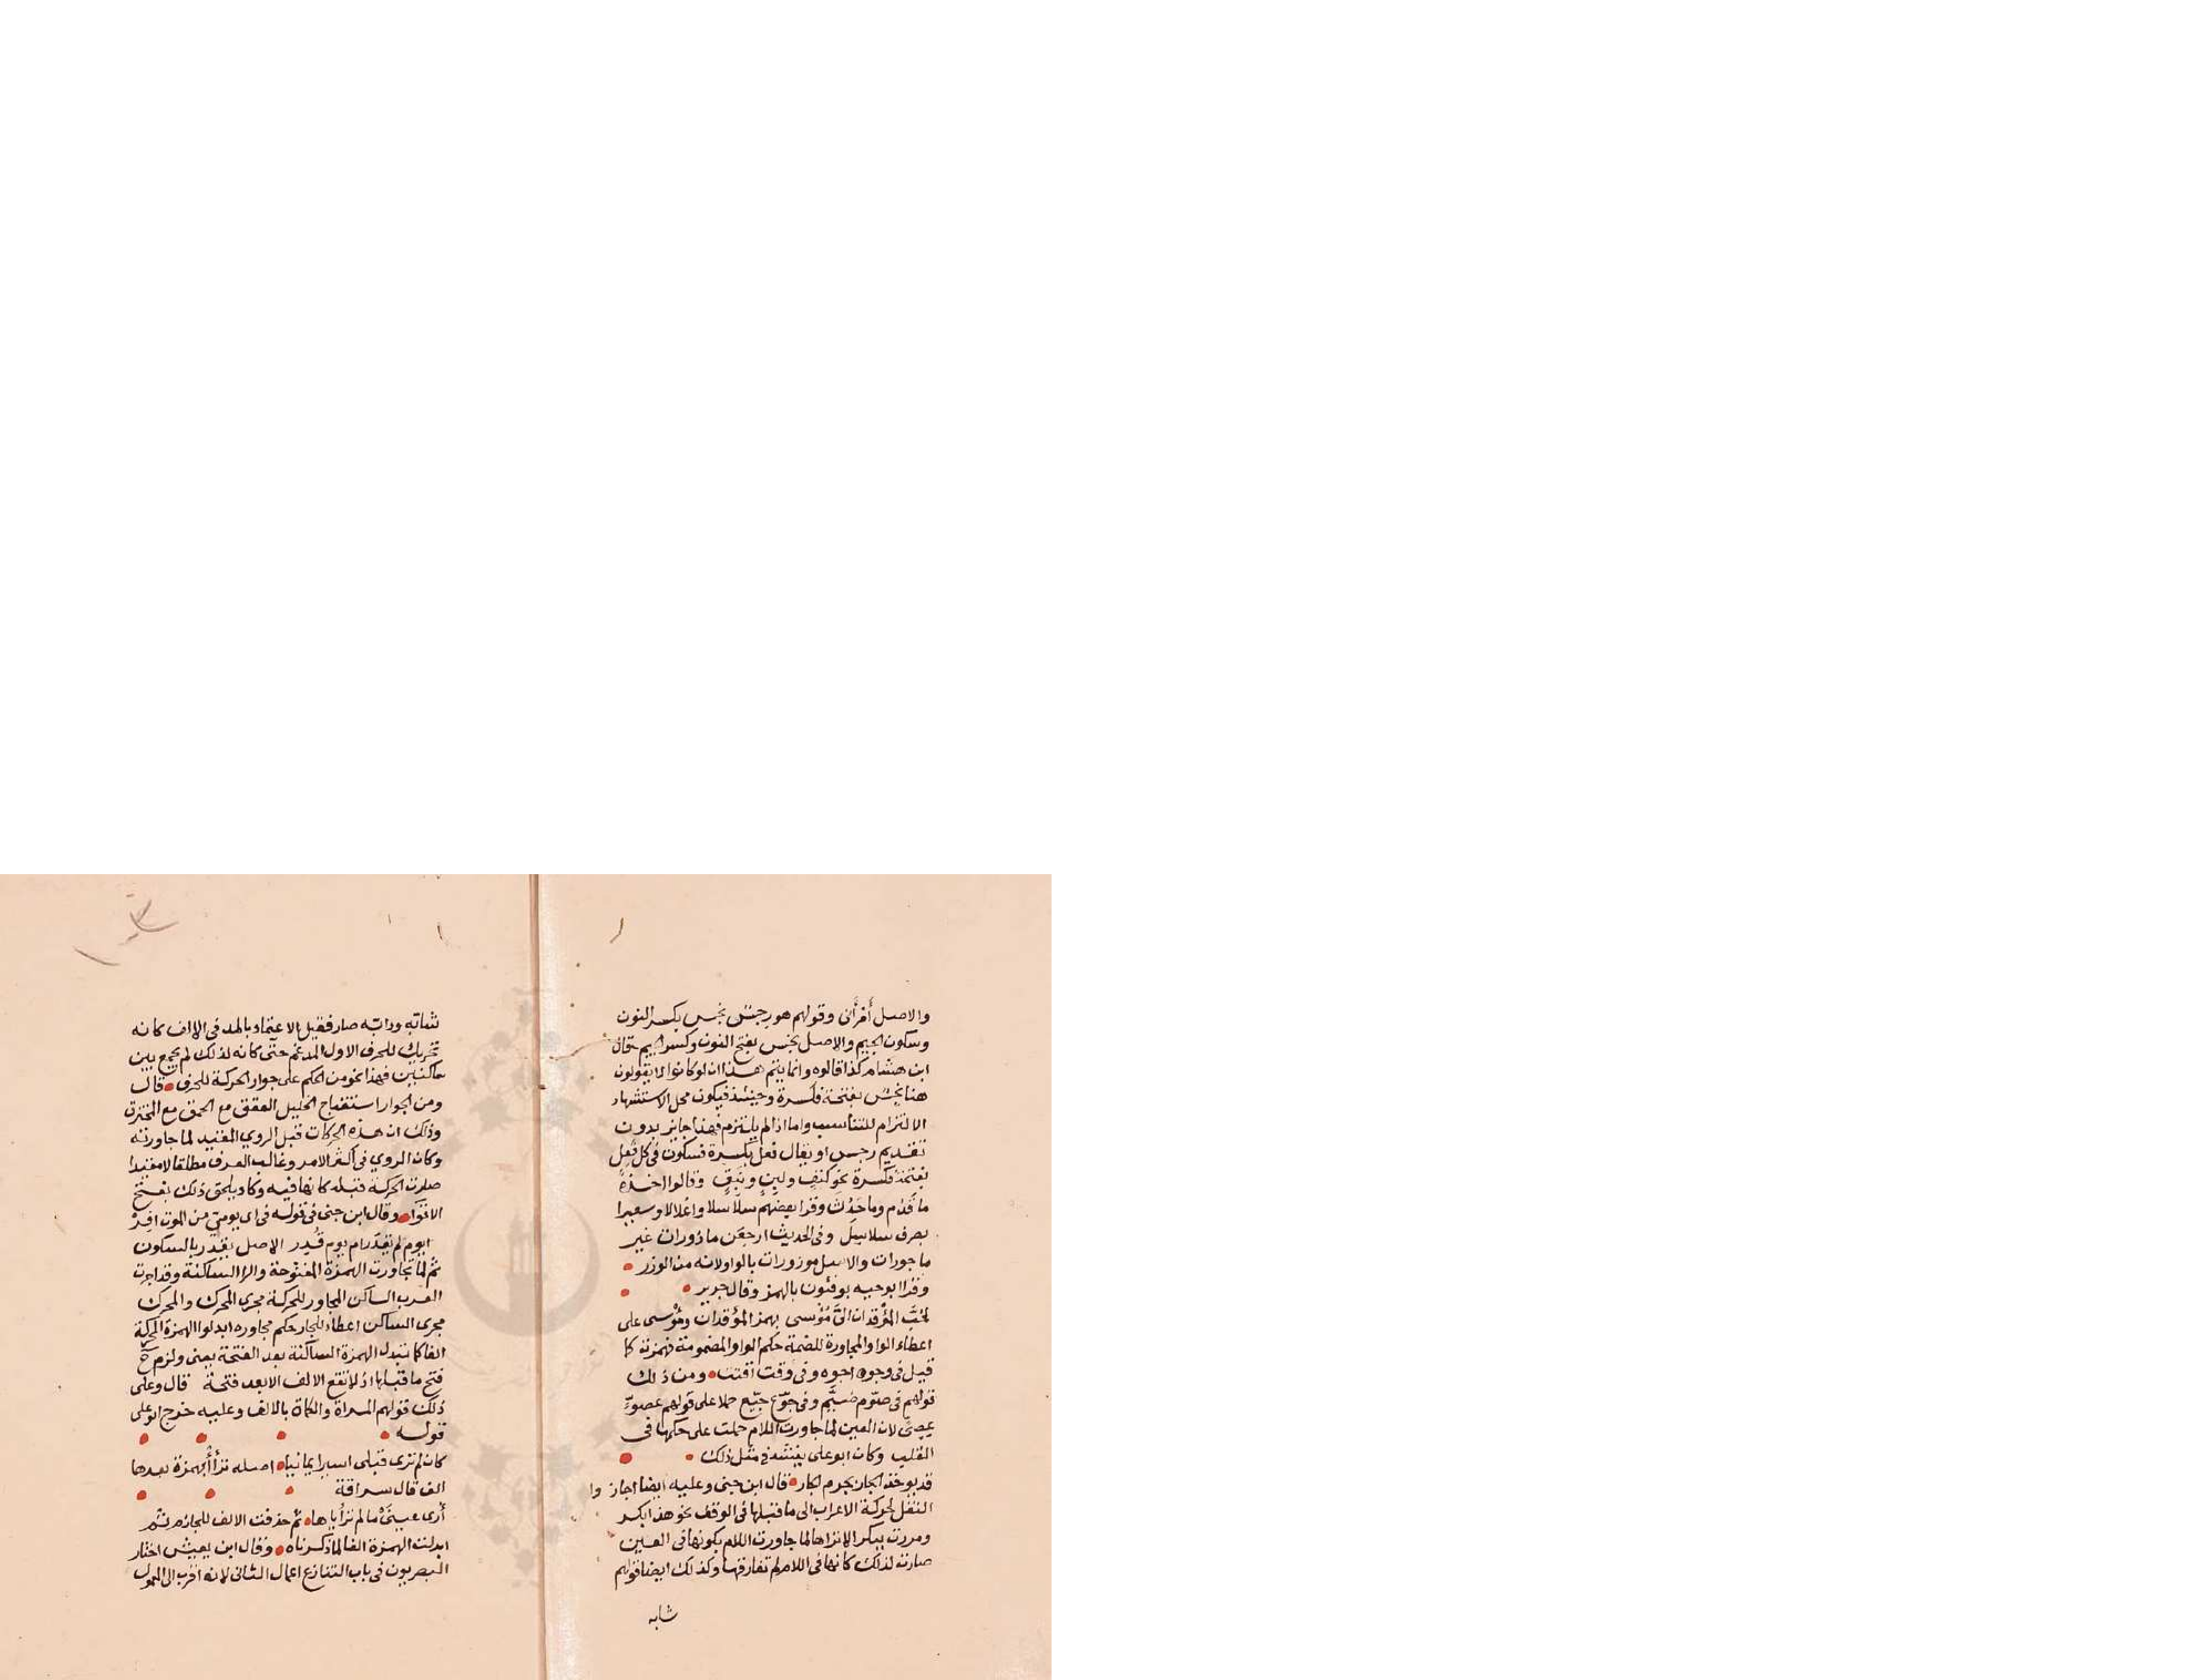 والاصل أمرأنى وقولهم هو رجس نجس بكسر النون
وسكون الجيم والاصل نجس بفتح النون وكسر الجيم قال
ابن هشام كذا قالوه وانما يتم هذا ان لو كانوا لا يقولون
هنا نجس بفتحة فكسرة وحينئذ فيكون محل الاستشهاد
الالتزام للتناسب واما اذا لم يلتزم فهذا جايز بدون
تقديم رجس او يقال فعل بكسرة فسكون في كل فعل
بفتحة فكسرة نحو كتف ولبن ونبق وقالوا اخذه
ما قدم وما حدث وقرا بعضهم سلاسلا واغلالا وسعيرا
بصرف سلاسل وفي الحديث ارجعن مازورات غير
ماجورات والاصل موزورات بالواو لانه من الوزر
وقرا ابو حيه يوقنون بالهمز وقال جرير
لحب المؤقدان الي مؤسى بهمز المؤقدان ومؤسى على
اعطاء الواو المجاورة للضمة حكم الواو المضمومة فهمزت كما
قيل في وجوه اجوه وفي وقتت اقتت ومن ذلك
قولهم في صوم صيم وفي جوع جيع حملا على قولهم عصو
عصي لان العين لما جاورت اللام حملت على حكمها في
القلب وكان ابو على ينشد في مثل ذلك
قد يوخذ الجار بجرم الجار قال ابن جنى وعليه ايضا اجازوا
النقل لحركة الاعراب الى ما قبلها في الوقف نحو هذا بكر
ومررت ببكر الا تراها لما جاورت اللام بكونها في العين
صارت لذلك كانها في اللام لم تفارقها وكذلك ايضا قولهم
شابه
شابه ودابه صار فضل الاعتماد بالمد في الالف كانه
تحريك للحرف الاول المدغم حتى كانه لذلك لم يجمع بين
ساكنين فهذا نحو من الحكم على جوار الحركة للحرف قال
ومن الجوار استقباح الخليل العقق مع الحمق مع المخترق
وذلك ان هذه الحركات قبل الروي المقيد لما جاورته
وكان الروي في اكثر الامر وغالب العرف مطلقا لا مقيدا
صارت الحركة قبله كانها فيه وكاد يلحق ذلك بقبح
الاقوا وقال ابن جنى في قوله في اى يومي من الموت افر
ايوم لم يقدر ام يوم قدر الاصل يقدر بالسكون
ثم لما تجاورت الهمزة المفتوحة والرا الساكنة وقد اجرت
العرب الساكن المجاور للمحركة مجرى المحرك والمحرك
مجرى الساكن اعطاء للجار حكم مجاوره ابدلوا الهمزة المحركة
الفا كما تبدل الهمزة الساكنة بعد الفتحة يعنى ولزم ح
فتح ما قبلها اذ لا تقع الالف الا بعد فتحة قال وعلى
ذلك قولهم المراة والكماة بالالف وعليه خرج ابو على
قوله
كان لم ترى قبلى اسيرا يمانيا اصله ترأا بهمزة بعدها
الف قال سراقة
أرى عينيّ ما لم ترأياها ثم حذفت الالف للجازم ثم
ابدلت الهمزة الفا لما ذكرناه وقال ابن يعيش اختار
البصريون في باب التنازع اعمال الثانى لانه اقرب الى المعمول